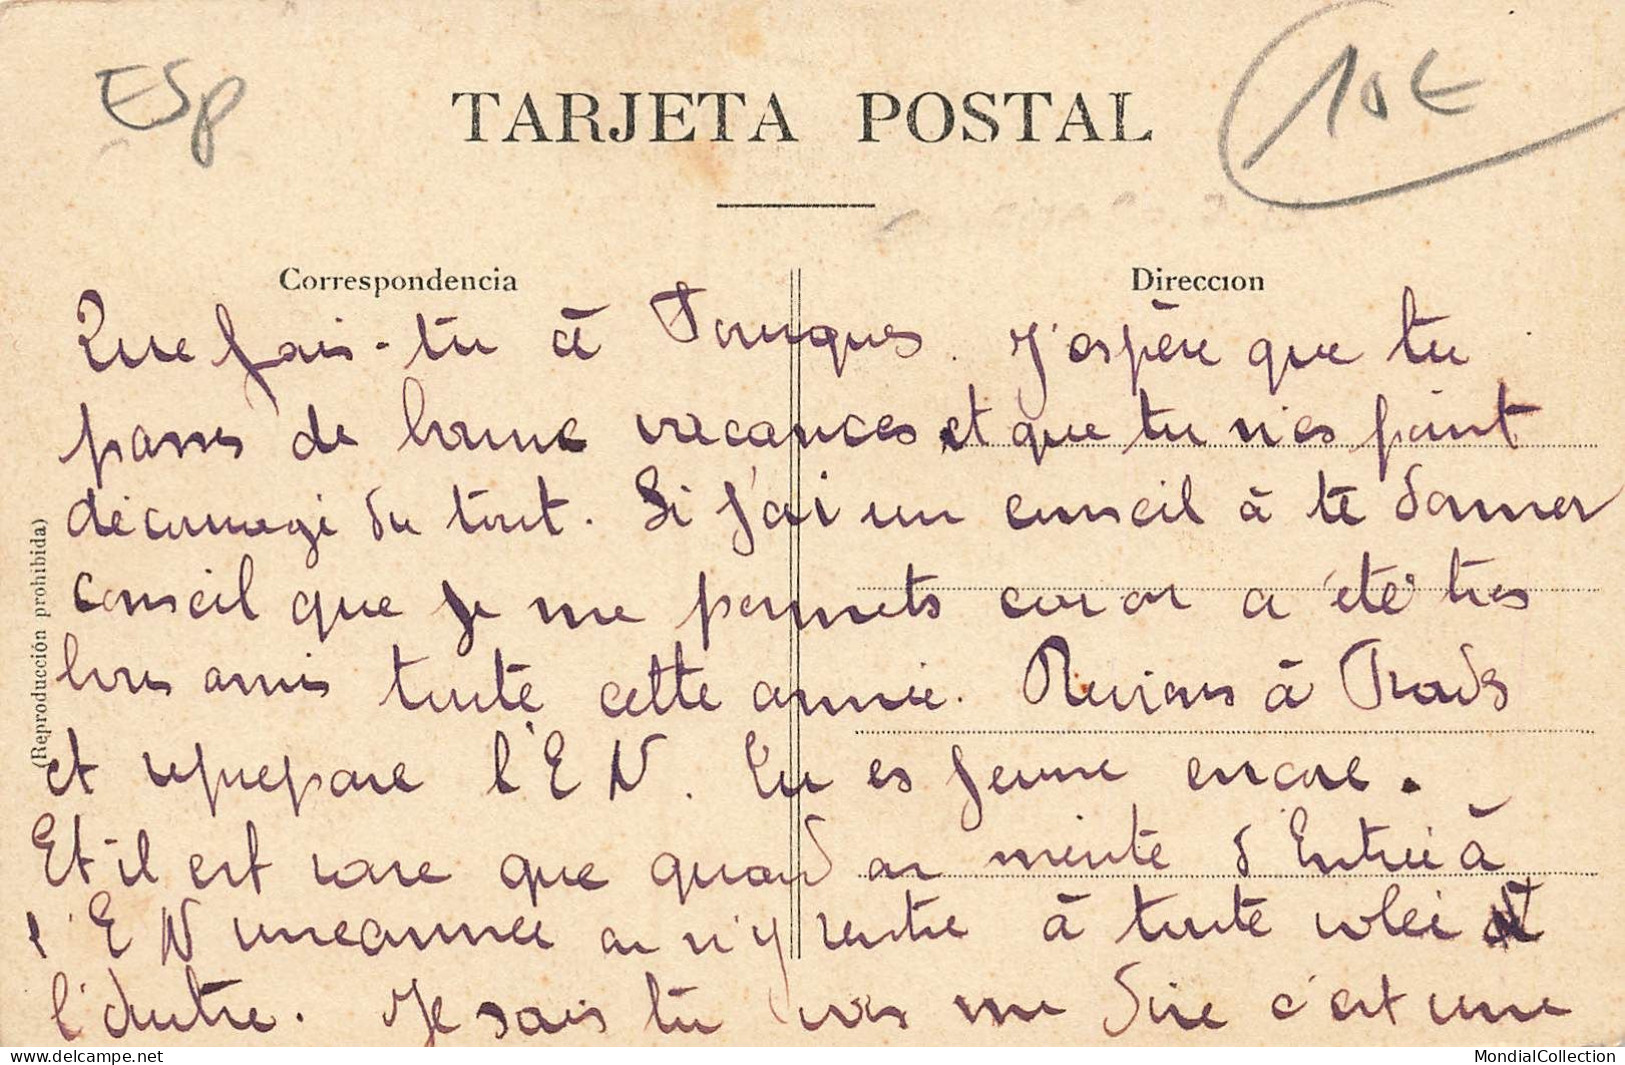 ESP
10€
TARJETA POSTAL
Correspondencia
Direccion
(Reproducción prohibida)
Que fais-tu à . J'espère que tu
passes de bonne vacances et que tu n'es point
découragé du tout. Si j'ai un conseil à te donner
conseil que je me permets car on a été très
bons amis toute cette année. Reviens à Prads
et reprepare l'E N. Tu es jeune encore.
Et il est rare que quand on mérite d'Entrée à
l'E N une année on n'y rentre à toute volée
l'autre. Je sais tu vas me dire c'est une
MondialCollection